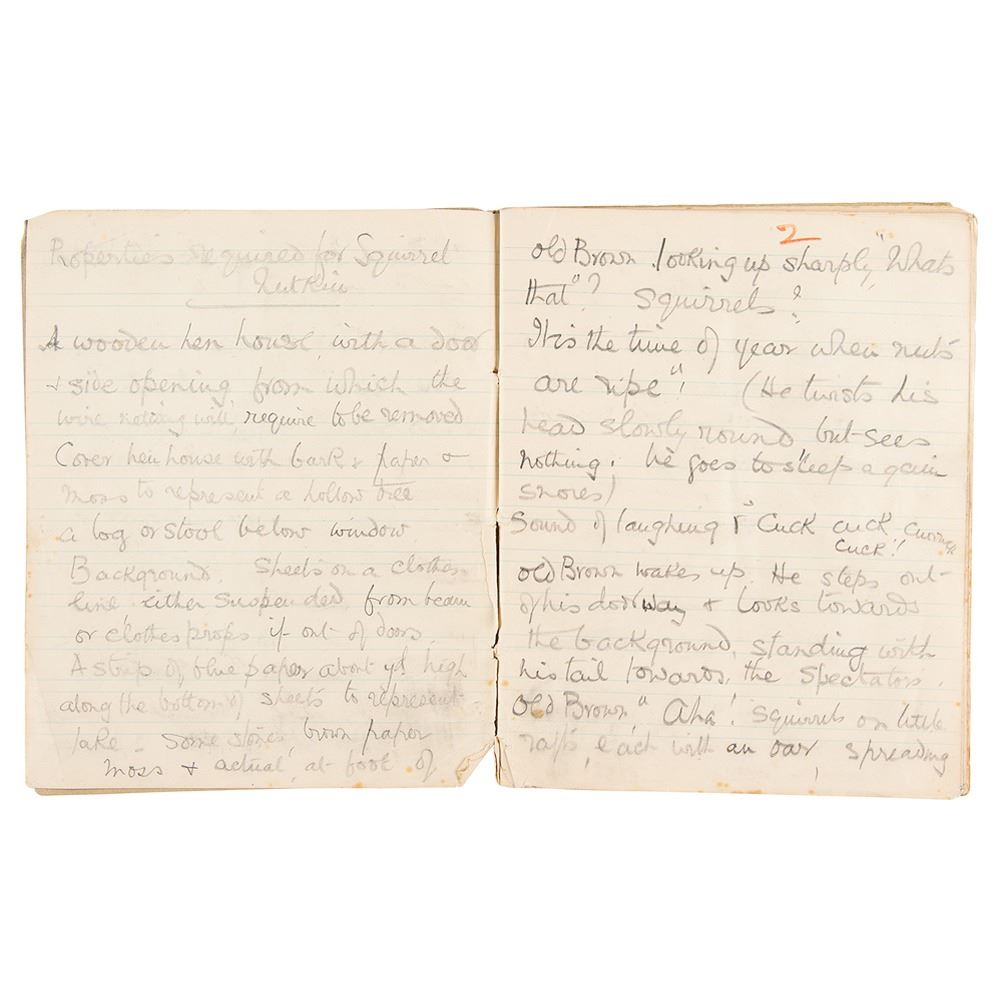 Properties required for Squirrel
Nutkin
A wooden hen house, with a door
+ side opening from which the
wire netting will require to be removed
Cover hen house with bark + paper +
moss to represent a hollow tree
a log or stool below window.
Background. Sheets on a clothes
line either suspended from beam
or clothes props if out of doors.
A strip of blue paper about yd high
along the bottom of sheets to represent
lake - some stones, brown paper
moss + actual, at foot of
2
old Brown looking up sharply, "Whats
that"? Squirrels?
It is the time of year when nuts
are ripe"! (He twists his
head slowly round but sees
nothing. he goes to sleep again
snores)
Sound of laughing "Cuck cuck
Cuck!
old Brown wakes up. He steps out
of his doorway + looks towards
the background, standing with
his tail towards the Spectators.
Old Brown "Aha! squirrels on little
rafts, each with an oar, spreading